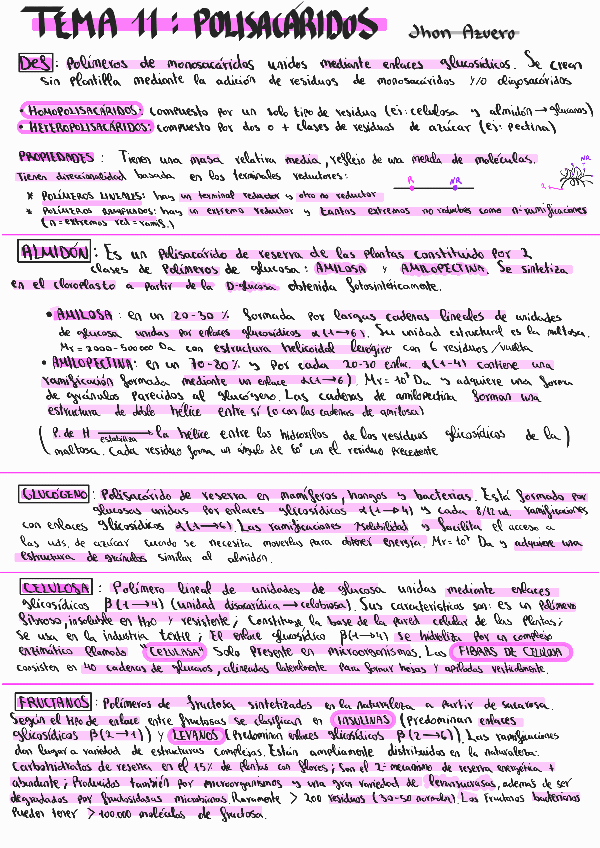 TEMA 11: POLISACÁRIDOS Jhon Azuero
Def: Polímeros de monosacáridos unidos mediante enlaces glucosídicos. Se crean
sin plantilla mediante la adición de residuos de monosacáridos y/o oligosacáridos
• HOMOPOLISACÁRIDOS: compuesto por un solo tipo de residuo (ej: celulosa y almidón → glucanos)
• HETEROPOLISACÁRIDOS: compuesto por dos o + clases de residuos de azúcar (ej: pectina)
PROPIEDADES: Tienen una masa relativa media, reflejo de una mezcla de moléculas.
Tienen direccionalidad basada en los terminales reductores:
R NR
NR
* POLÍMEROS LINEALES: hay un terminal reductor y otro no reductor
* POLÍMEROS RAMIFICADOS: hay un extremo reductor y tantos extremos no reductores como nº ramificaciones
(n = extremos red = ramif.)
ALMIDÓN: Es un polisacárido de reserva de las plantas constituido por 2
clases de Polímeros de glucosa: AMILOSA y AMILOPECTINA. Se sintetiza
en el cloroplasto a partir de la D-glucosa obtenida fotosintéticamente.
• AMILOSA: en un 20-30 % formada por largas cadenas lineales de unidades
de glucosa unidas por enlaces glucosídicos α(1→6). Su unidad estructural es la maltosa.
Mr = 2000-500000 Da con estructura helicoidal levógiro con 6 residuos/vuelta
• AMILOPECTINA: en un 70-80 % y por cada 20-30 enlac. α(1-4) contiene una
ramificación formada mediante un enlace α(1→6). Mr = 10⁶ Da y adquiere una forma
de gránulos parecidos al glucógeno. Las cadenas de amilopectina forman una
estructura de doble hélice entre sí (o con las cadenas de amilosa)
(P. de H → estabiliza la hélice entre los hidroxilos de los residuos glicosídicos de la)
maltosa. Cada residuo forma un ángulo de 60º con el residuo precedente
GLUCÓGENO: Polisacárido de reserva en mamíferos, hongos y bacterias. Está formado por
glucosas unidas por enlaces glicosídicos α(1→4) y cada 8/12 ud. ramificaciones
con enlaces glicosídicos α(1→6). Las ramificaciones ↑solubilidad y facilita el acceso a
las uds. de azúcar cuando se necesita moverlas para obtener energía. Mr = 10⁷ Da y adquiere una
estructura de gránulos similar al almidón.
CELULOSA: Polímero lineal de unidades de glucosa unidas mediante enlaces
glicosídicos β(1→4) (unidad disacarídica → celobiosa). Sus características son: es un Polímero
fibroso, insoluble en H₂O y resistente; Constituye la base de la pared celular de las plantas;
Se usa en la industria textil; El enlace glucosídico β(1→4) se hidroliza por un complejo
enzimático llamado "CELULASA" Solo presente en microorganismos. Las FIBRAS DE CELULOSA
consisten en 40 cadenas de glucanos, alineadas lateralmente para formar hojas y apiladas verticalmente.
FRUCTANOS: Polímeros de fructosa sintetizados en la naturaleza a partir de sacarosa.
Según el tipo de enlace entre fructosas se clasifican en INSULINAS (Predominan enlaces
glicosídicos β(2→1)) y LEVANOS (Predominan enlaces glicosídicos β(2→6)). Las ramificaciones
dan lugar a variedad de estructuras complejas. Están ampliamente distribuidos en la naturaleza:
Carbohidratos de reserva en el 15% de plantas con flores; Son el 2º mecanismo de reserva energética +
abundante; Producidos también por microorganismos y una gran variedad de levansucrasas, además de ser
degradados por fructosidasas microbianas. Raramente > 200 residuos (30-50 normalm). Los fructanos bacterianos
Pueden tener > 100.000 moléculas de fructosa.